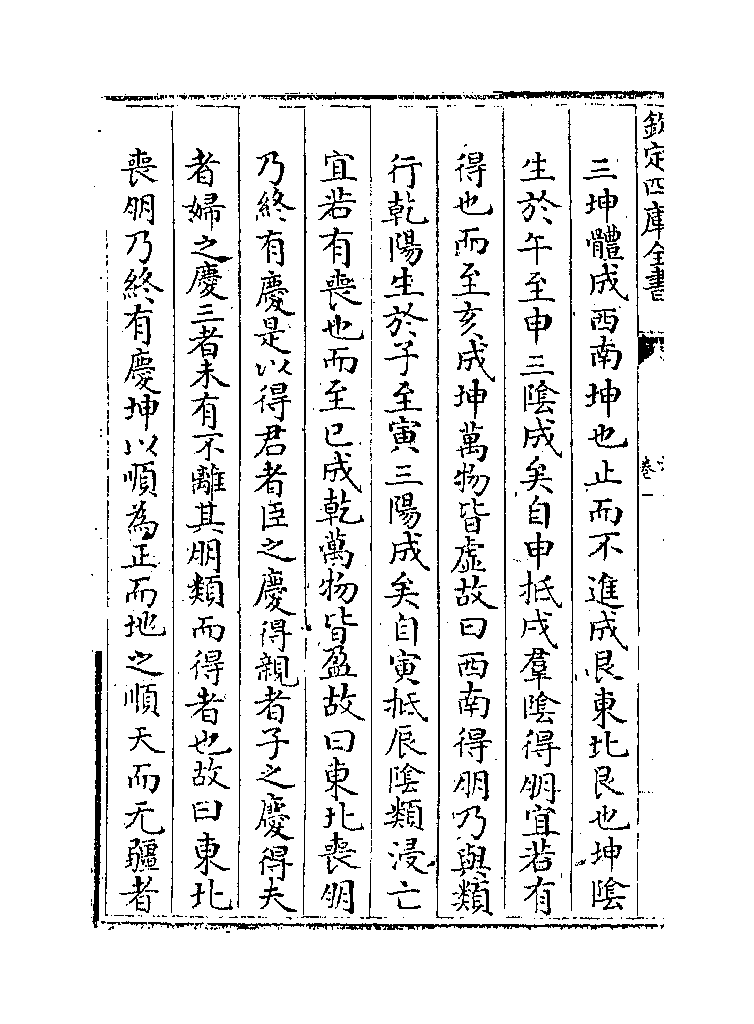 欽定四庫全書
卷一
三坤體成西南坤也止而不進成艮東北艮也坤陰
生於午至申三陰成矣自申抵戌羣陰得朋宜若有
得也而至亥成坤萬物皆虛故曰西南得朋乃與類
行乾陽生於子至寅三陽成矣自寅抵辰陰類浸亡
宜若有喪也而至巳成乾萬物皆盈故曰東北喪朋
乃終有慶是以得君者臣之慶得親者子之慶得夫
者婦之慶三者未有不離其朋類而得者也故曰東北
喪朋乃終有慶坤以順為正而地之順天而无疆者